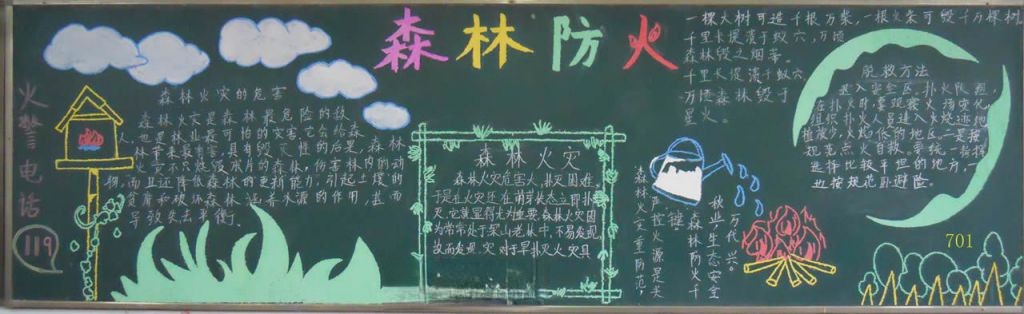 森林防火
火警电话
119
森林火灾的危害
森林火灾是森林最危险的敌
人,也是林业最可怕的灾害,它会给森
林带来最严重,具有毁灭性的后果,森林
火灾不只烧毁成片的森林,伤害林内的动
物,而且还降低森林的更新能力,引起土壤的
贫瘠和破坏森林涵养水源的作用,甚而
导致失去平衡。
森林火灾
森林火灾危害人,扑灭困难,
于是在火灾还在萌芽状态立即扑
灭,它就显得尤为重要,森林火灾因
为常常处于深山老林中,不易发现,
故而发现火灾对于早扑灭火灾具
一棵大树可造千根万柴,一根火柴可毁千万棵树
千里长堤溃于蚁穴,万顷
森林毁之烟蒂。
千里长堤溃于蚁穴,
万顷森林毁于
星火。
森林火灾重防范,
严控火源是关
键
森林防火千
秋业,生态安全
万代兴。
脱救方法
进入安全区,扑火队员
在扑火时,要观察火场变化,
组织扑火人员进入火烧迹地
植被少、火焰低的地区,二是按
规范点火自救,要统一指挥
选择比较平坦的地方,一
也按规范卧避险。
701